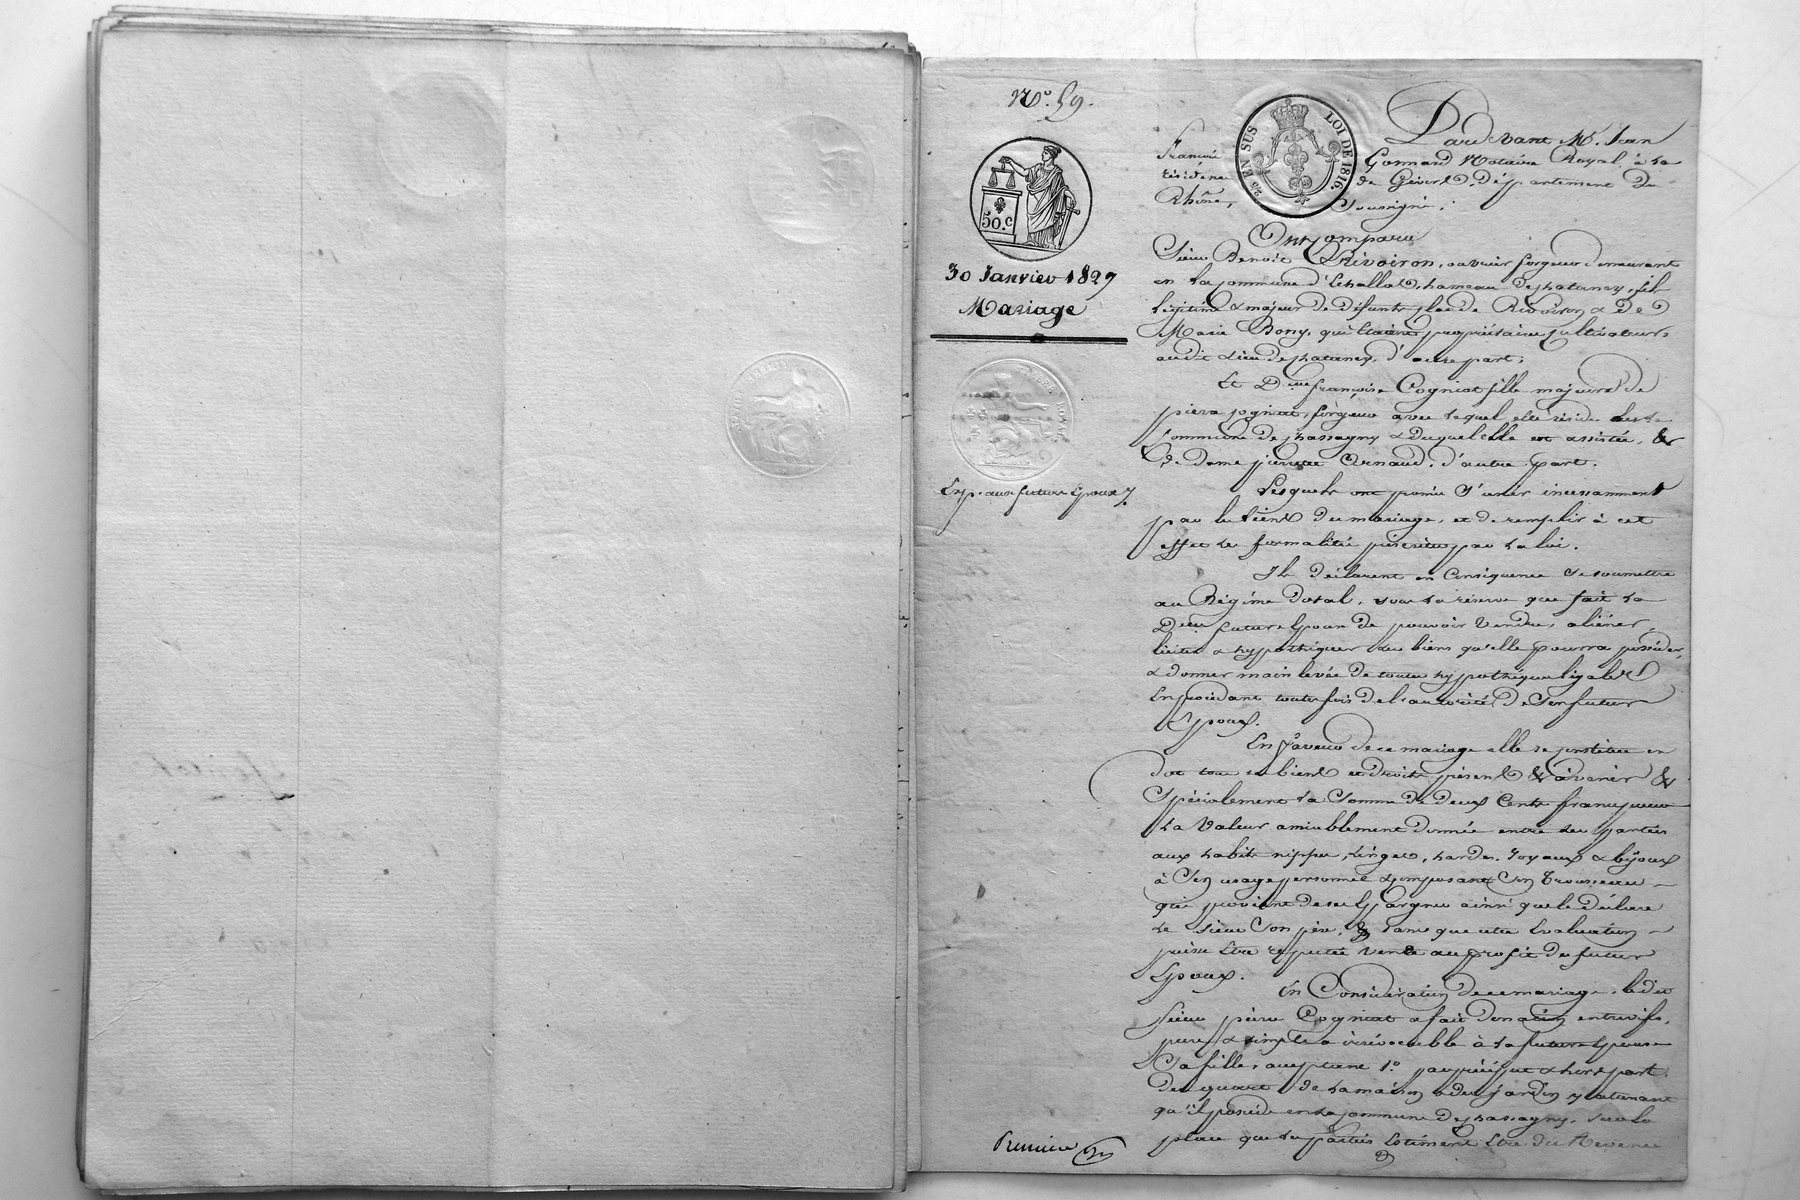 N.º 59.
50.c
30 Janvier 1827
Mariage
Exp. aux futurs Epoux
25 EN SUS LOI DE 1816.
Pardevant Me. Jean
François Gonnard Notaire Royal à la
résidence de Givors, département du
Rhône, Soussigné.
Ont comparu
Sieur Benoit Rivoiron, ouvrier forgeur demeurant
en la commune d'Echallas, hameau de chatanay, fils
légitime & majeur de défunts Claude Rivoiron & de
Marie Bony, qui étaient propriétaires cultivateurs
audit lieu de chatanay, d'une part;
Et Dlle françoise Cogniat fille majeure de
pierre Cogniat, forgeur avec lequel elle réside
commune de chassagny & duquel elle est assistée, &
de dame pierrette Arnaud, d'autre part.
Lesquels ont promis s'unir incessamment
par les liens du mariage, et de remplir à cet
effet les formalités préscrites par la loi.
Ils déclarent en conséquence se soumettre
au Régime dotal, sous la réserve que fait la
Dlle future Epouse de pouvoir vendre, aliéner,
liciter & hypothéquer les biens qu'elle pourra posséder,
& donner main levée de toutes hypothèques légales
En procédant toutefois de l'autorité de son futur
Epoux.
En faveur de ce mariage elle se constitue en
dot tous ses biens et droits présents & à venir &
Spécialement la somme de deux cents francs pour
la valeur amiablement donnée entre les parties
aux habits nippes, linges, hardes, joyaux & bijoux
à son usage personnel & composant son Trousseau
qui provient de ses Epargnes ainsi que le déclare
le sieur son père, & sans que cette Evaluation
puisse être réputée vente au profit du futur
Epoux.
En Considération de ce mariage, ledit
Sieur pierre Cogniat a fait donation entrevifs,
pure & simple & irrévocable à la future Epouse
Sa fille, acceptante 1.º par préciput & hors part
du quart de la maison & du jardin y attenant
qu'il possède en la commune de chassagny, sur la
place que les parties Estiment être du Revenu
Première